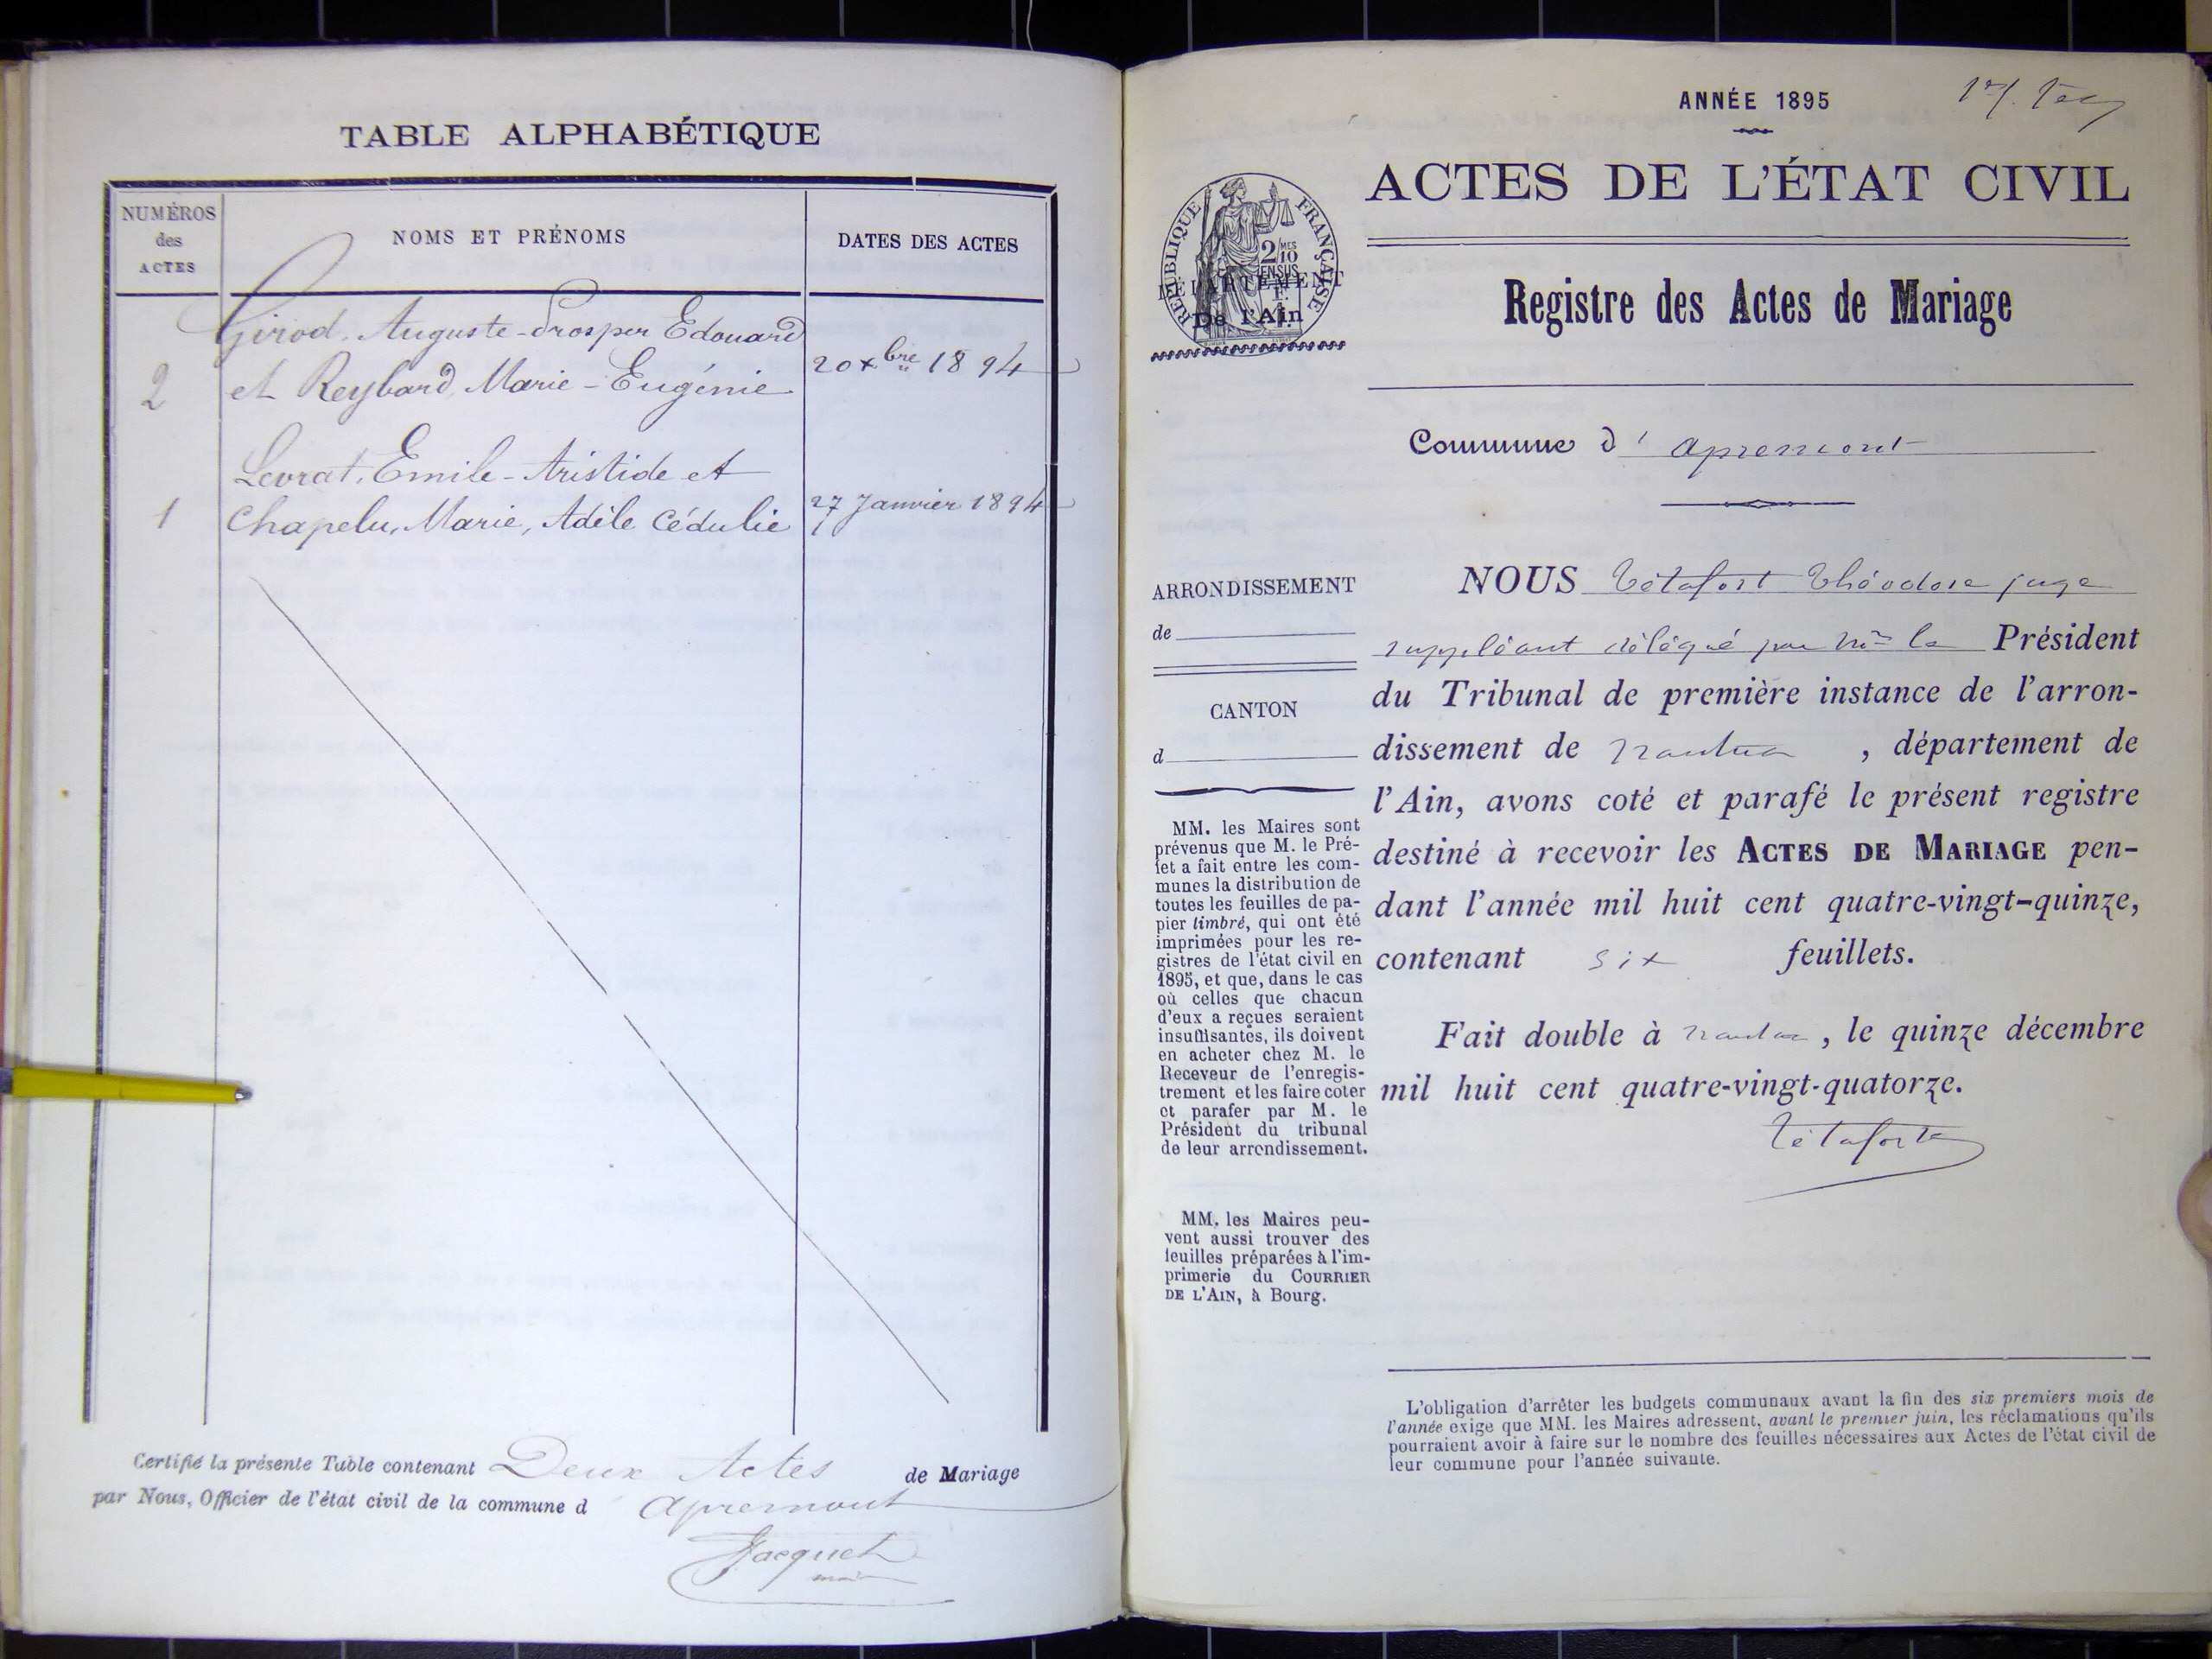 TABLE ALPHABÉTIQUE
NUMÉROS
des
ACTES
NOMS ET PRÉNOMS
DATES DES ACTES
Girod, Auguste-Prosper Edouard
2 et Reybard, Marie-Eugénie 20 xbre 1894
Levrat, Emile-Aristide et
1 Chapelu, Marie, Adèle Cédulie 27 Janvier 1894
Certifié la présente Table contenant Deux Actes de Mariage
par Nous, Officier de l'état civil de la commune d Apremont
Jacquet
maire
ANNÉE 1895
ACTES DE L'ÉTAT CIVIL
RÉPUBLIQUE FRANÇAISE
2/10 MES
EN SUS
DÉPARTEMENT
De l'Ain
Registre des Actes de Mariage
Commune d' apremont
ARRONDISSEMENT
de
CANTON
d
MM. les Maires sont
prévenus que M. le Pré-
fet a fait entre les com-
munes la distribution de
toutes les feuilles de pa-
pier timbré, qui ont été
imprimées pour les re-
gistres de l'état civil en
1895, et que, dans le cas
où celles que chacun
d'eux a reçues seraient
insuffisantes, ils doivent
en acheter chez M. le
Receveur de l'enregis-
trement et les faire coter
et parafer par M. le
Président du tribunal
de leur arrondissement.
MM. les Maires peu-
vent aussi trouver des
feuilles préparées à l'im-
primerie du COURRIER
DE L'AIN, à Bourg.
NOUS Tétafort Théodore juge
suppléant délégué par Mr le Président
du Tribunal de première instance de l'arron-
dissement de nantua , département de
l'Ain, avons coté et parafé le présent registre
destiné à recevoir les ACTES DE MARIAGE pen-
dant l'année mil huit cent quatre-vingt-quinze,
contenant six feuillets.
Fait double à nantua , le quinze décembre
mil huit cent quatre-vingt-quatorze.
Tétafort
L'obligation d'arrêter les budgets communaux avant la fin des six premiers mois de
l'année exige que MM. les Maires adressent, avant le premier juin, les réclamations qu'ils
pourraient avoir à faire sur le nombre des feuilles nécessaires aux Actes de l'état civil de
leur commune pour l'année suivante.